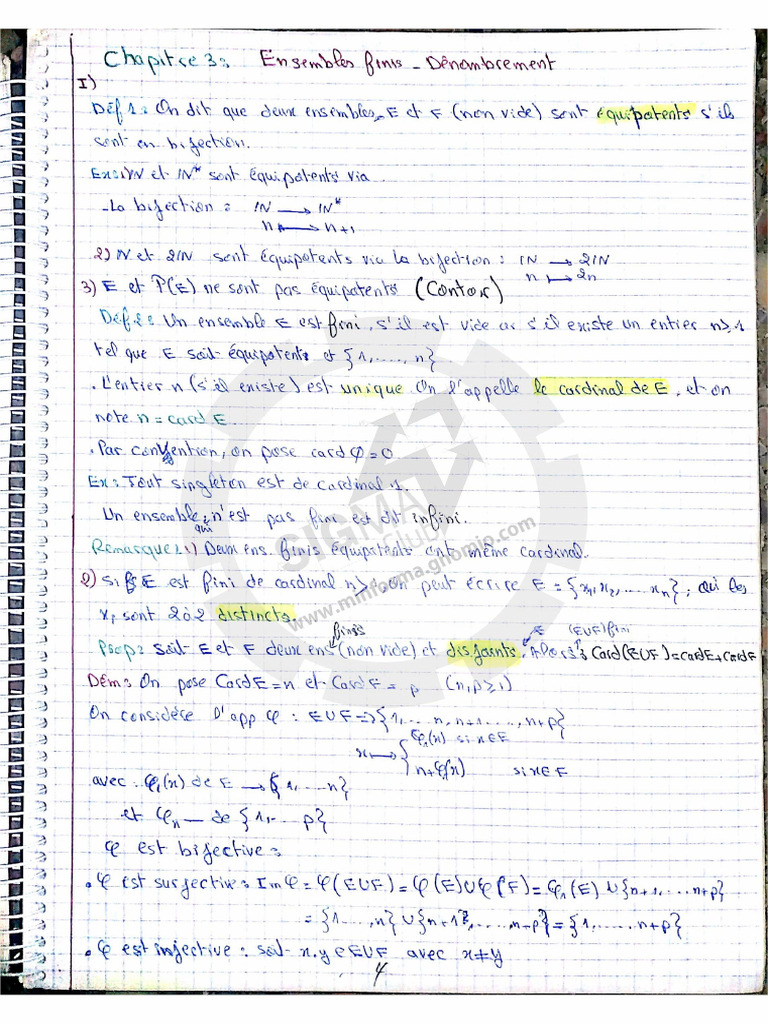 Chapitre 3: Ensembles finis - Dénombrement
I)
Déf 1: On dit que deux ensembles E et F (non vide) sont équipotents s'ils
sont en bijection.
Ex: 1) IN et IN* sont équipotents via
-La bijection: IN → IN*
n ↦ n+1
2) IN et 2IN sont équipotents via la bijection: IN → 2IN
n ↦ 2n
3) E et P(E) ne sont pas équipotents (Contor)
Déf 2: Un ensemble E est fini, s'il est vide ou s'il existe un entier n≥1
tel que E soit équipotents et {1,....,n}.
. L'entier n (s'il existe) est unique On l'appelle le cardinal de E, et on
note n = card E.
. Par convention, on pose card φ = 0
Ex: Tout singleton est de cardinal 1.
Un ensemble qui n'est pas fini est dit infini.
Remarque: 1) Deux ens. finis équipotents ont même cardinal.
2) Si E est fini de cardinal n≥1, on peut écrire E = {x₁, x₂, .... xₙ}, où les
xᵢ sont 2 à 2 distincts.
Prop: Soit E et F deux ens finis (non vide) et disjoints. Alors: (EUF) fini Card(EUF) = cardE + cardF
Dém: On pose Card E = n et Card F = p (n,p≥1)
On considère l'app φ: EUF => {1,...n, n+1...., n+p}
x ↦ { φ₁(x) si x∈E
n+φ(x) si x∈F
avec: φ₁(x) de E → {1,....n}
et φₙ — de {1,... p}
φ est bijective:
. φ est surjective: Im φ = φ(EUF) = φ(E) U φ(F) = φ₁(E) U {n+1,....n+p}
= {1....,n} U {n+1,....,n+p} = {1,....n+p}
. φ est injective: soit x,y ∈ EUF avec x ≠ y
4
SIGMA
CLUB
www.minfosma.gnomio.com